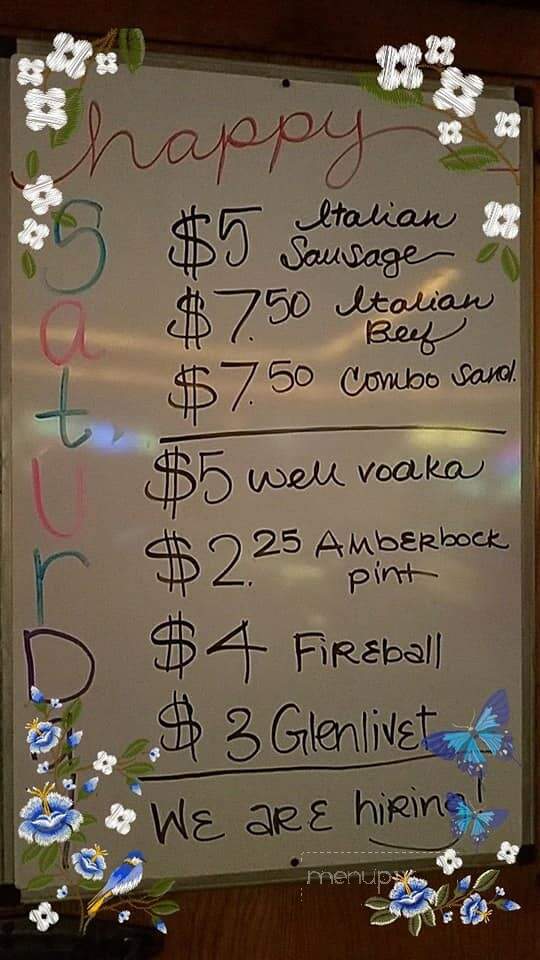 happy
SaturD
$5 Italian
Sausage
$7.50 Italian
Beef
$7.50 Combo Sand.
$5 well vodka
$2.25 Amberbock
pint
$4 Fireball
$3 Glenlivet
We are hiring!
menupix